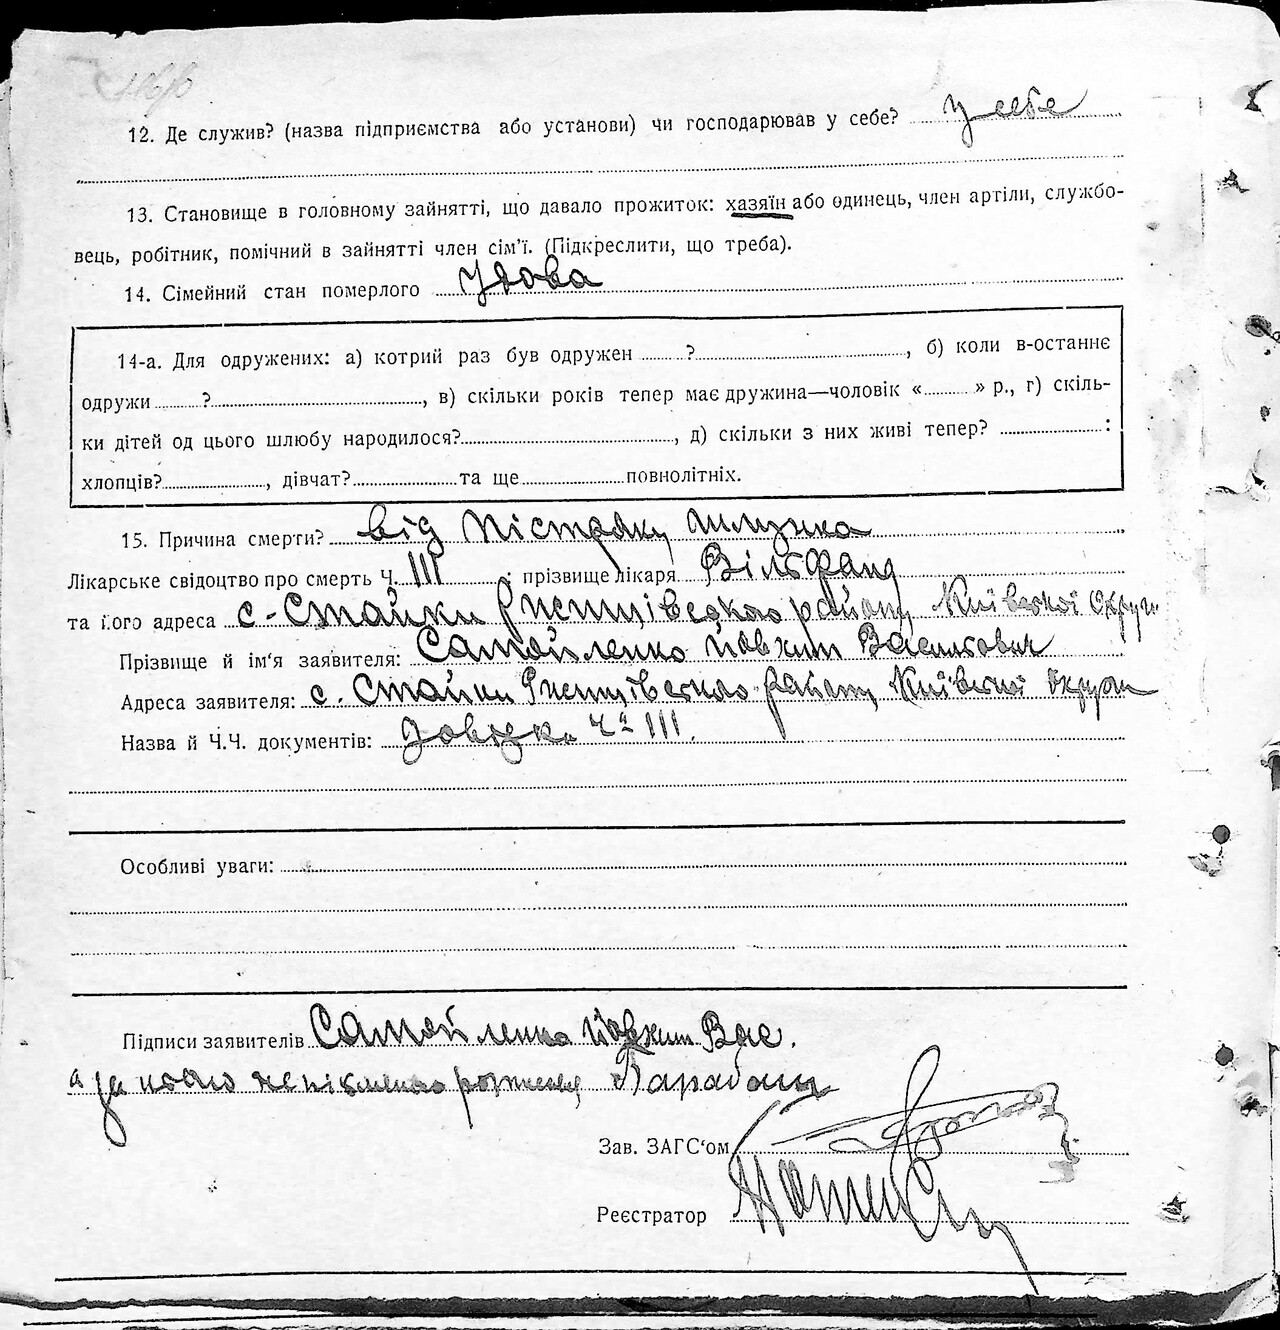 12. Де служив? (назва підприємства або установи) чи господарював у себе? У себе
13. Становище в головному зайнятті, що давало прожиток: хазяїн або одинець, член артіли, службо-
вець, робітник, помічний в зайнятті член сім'ї. (Підкреслити, що треба).
14. Сімейний стан померлого Удова
14-а. Для одружених: а) котрий раз був одружен ? , б) коли в-останнє
одружи ? , в) скільки років тепер має дружина—чоловік « » р., г) скіль-
ки дітей од цього шлюбу народилося? , д) скільки з них живі тепер? :
хлопців? , дівчат? та ще повнолітніх.
15. Причина смерти? від Пістряку шлунка
Лікарське свідоцтво про смерть Ч. 111 ; прізвище лікаря Вільфанд
та його адреса с-Стайки Ржищівського району Київської Округи
Прізвище й ім'я заявителя: Самойленко Йовхим Васильович
Адреса заявителя: с. Стайки Ржищівського району Київської Округи
Назва й Ч.Ч. документів: Довідка Ч 111.
Особливі уваги:
Підписи заявителів Самойленко Йовхим Вас.
а за його
Зав. ЗАГС'ом
Реєстратор